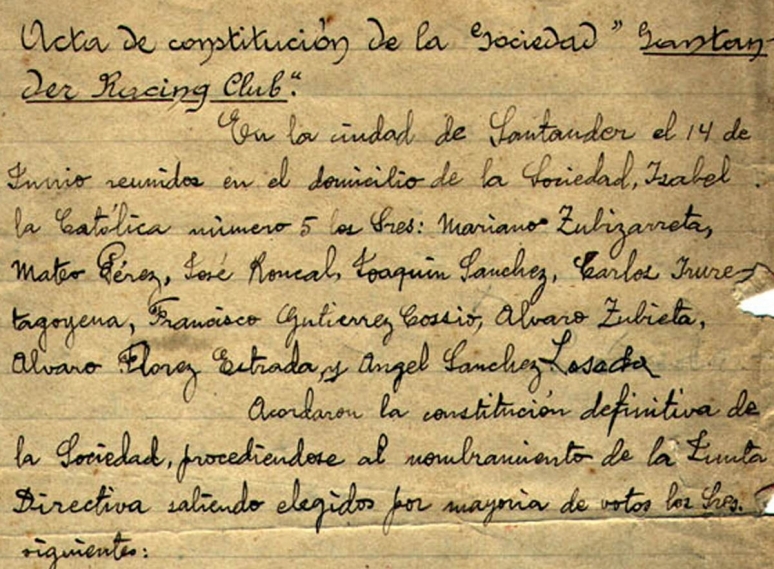 Acta de constitución de la Sociedad " Santan-
der Racing Club".
En la ciudad de Santander el 14 de
Junio reunidos en el domicilio de la Sociedad, Isabel
la Católica número 5 los Sres: Mariano Zubizarreta,
Mateo Pérez, José Roncal, Joaquin Sanchez, Carlos Irure-
tagoyena, Francisco Gutierrez Cossio, Alvaro Zubieta,
Alvaro Florez Estrada, y Angel Sanchez Losada
Acordaron la constitución definitiva de
la Sociedad, procediendose al nombramiento de la Junta
Directiva saliendo elegidos por mayoria de votos los Sres.
siguientes: